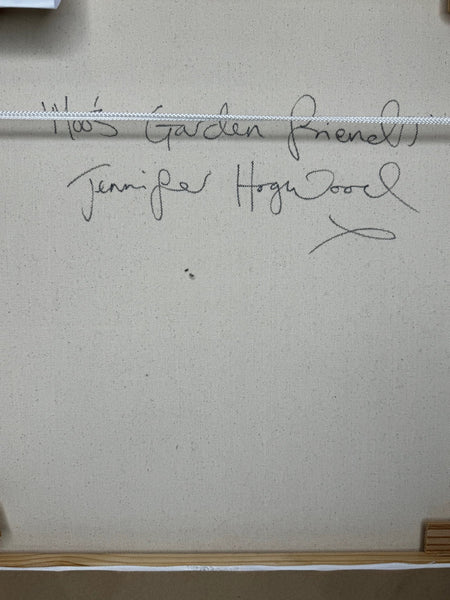 "Moo's Garden friends"
Jennifer Hogwood
x